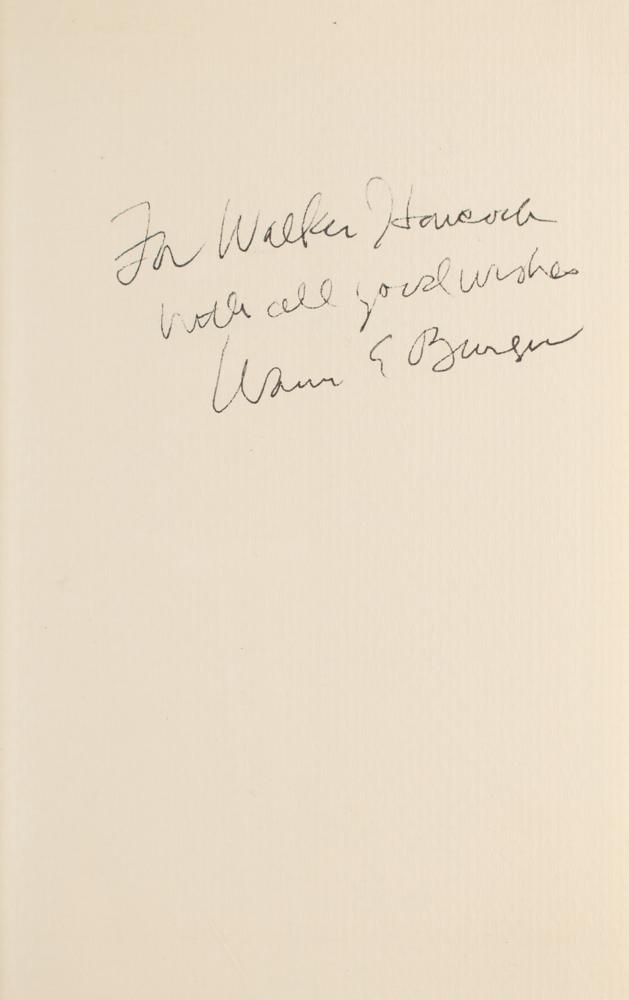 For Walker Hancock
with all good wishes
Warren E Burger